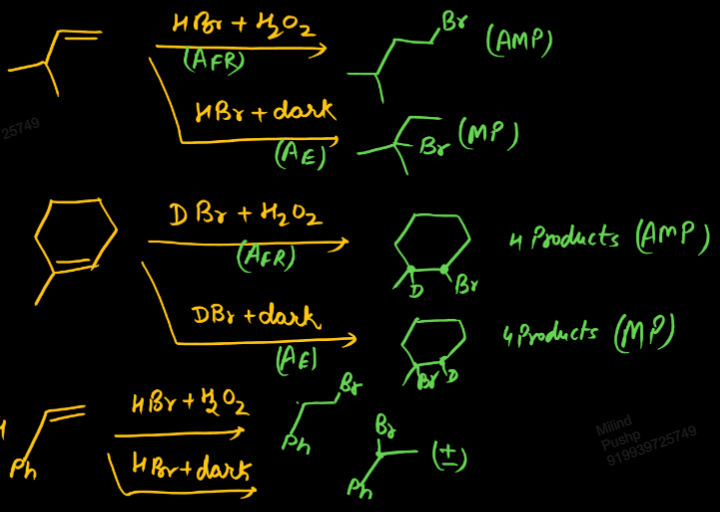 HBr + H2O2
(AFR)
Br
(AMP)
25749
HBr + dark
(AE)
Br (MP)
DBr + H2O2
(AFR)
D
Br
4 Products (AMP)
DBr + dark
(AE)
Br D
4 Products (MP)
HBr + H2O2
Br
Ph
Ph
HBr + dark
Br
(±)
Ph
Milind
Pushp
919939725749